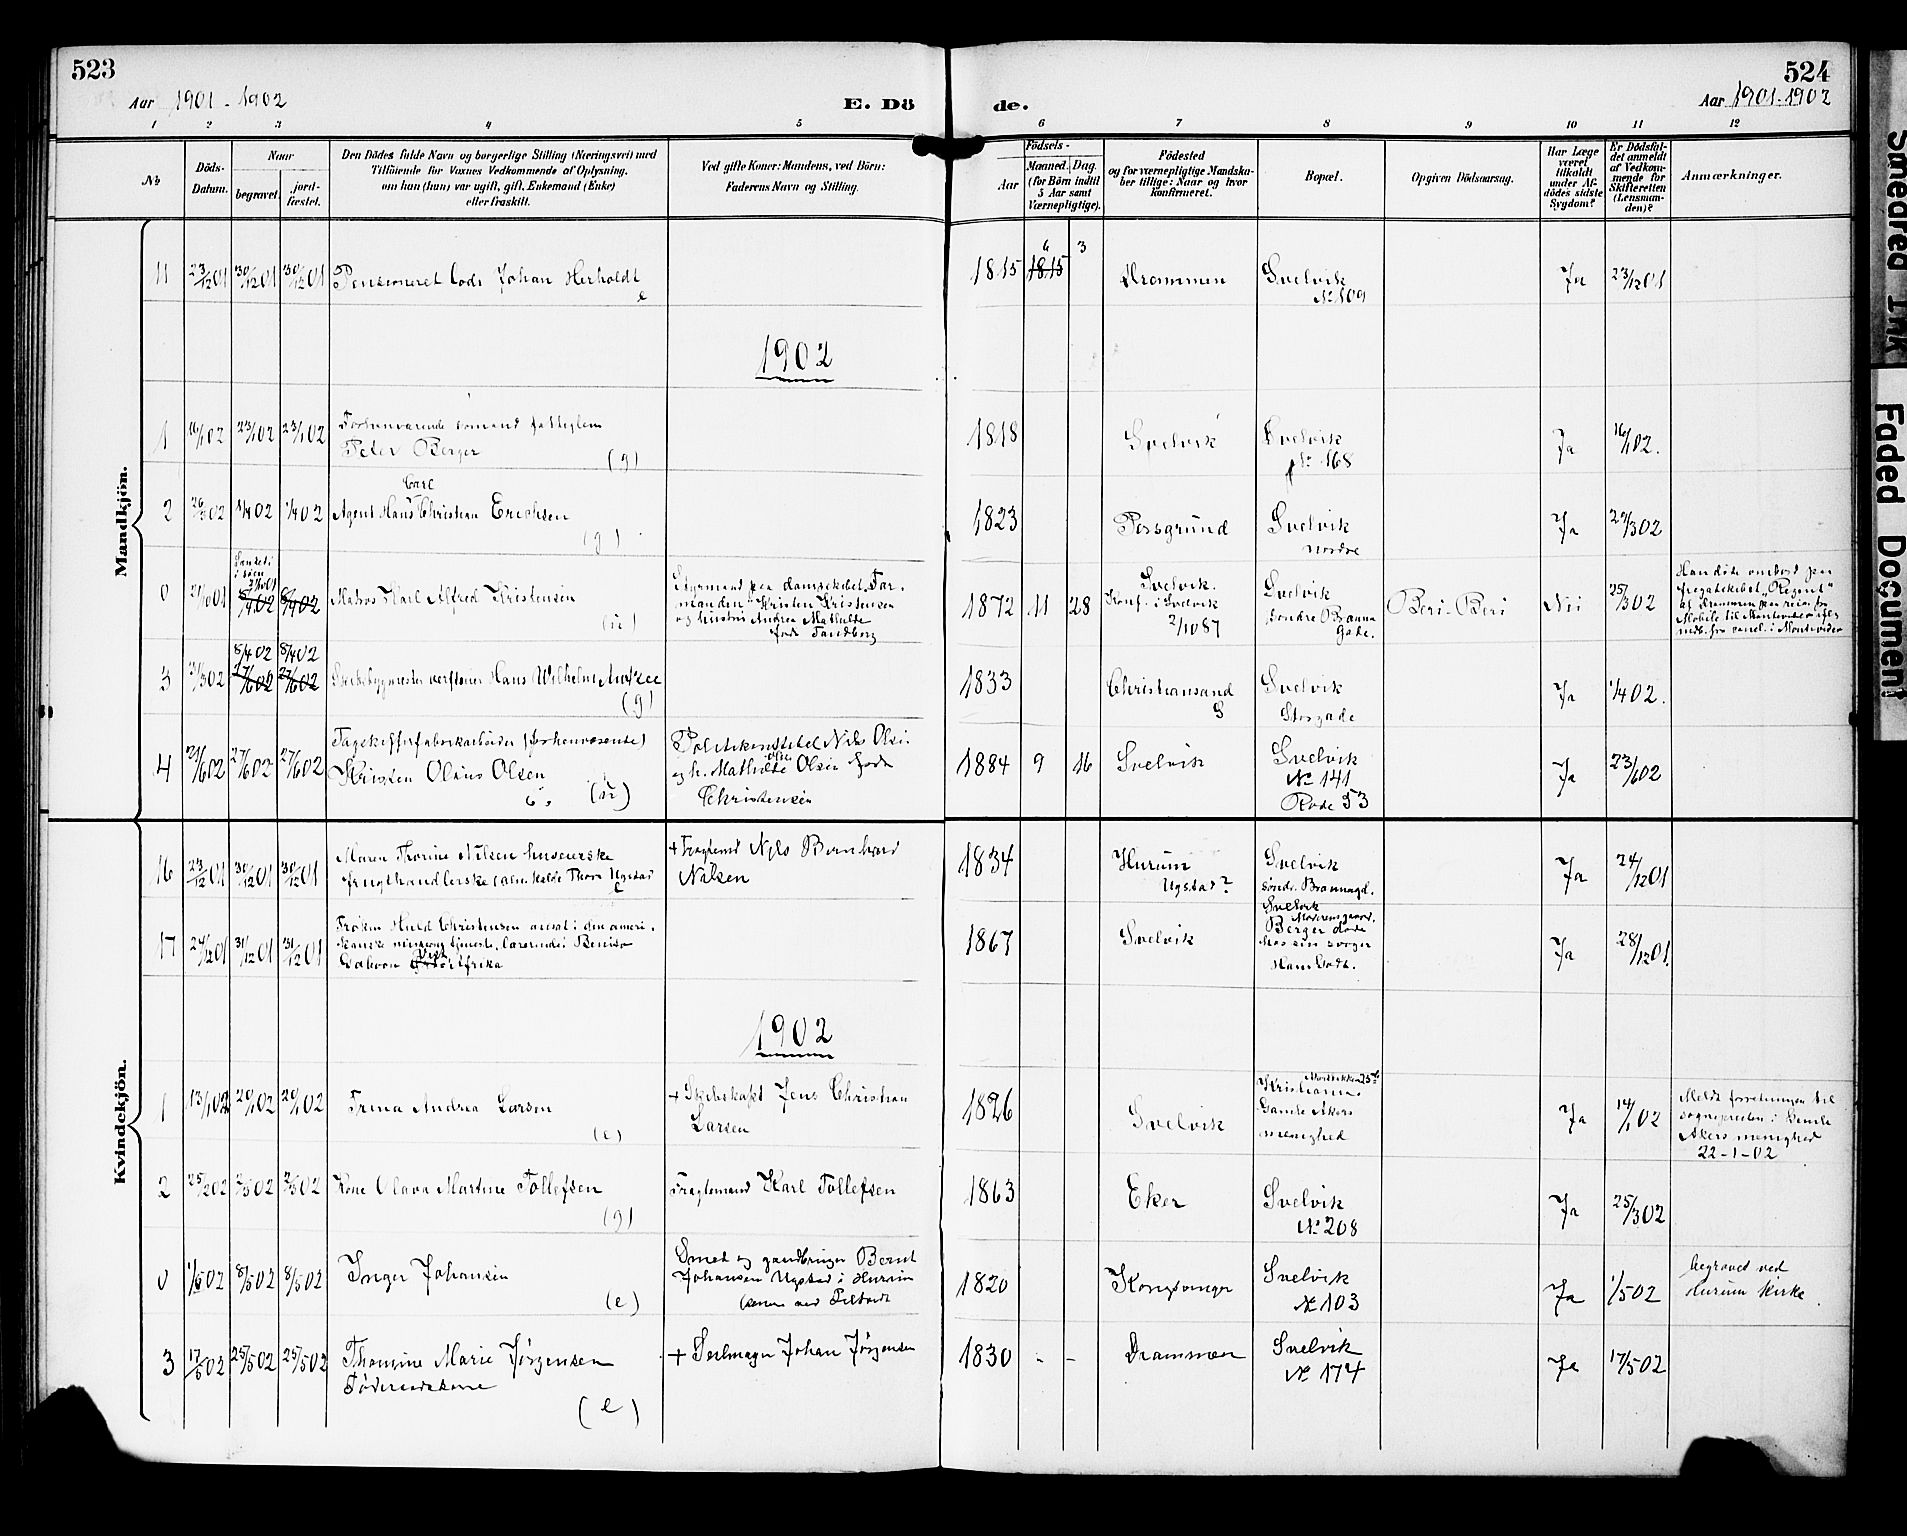 523
Aar 1901-1902
E. Dö
de.
524
Aar 1901-1902
1 2 3 4 5 6 7 8 9 10 11 12
No
Döds-Datum.
Naar
begravet.
jord-fæstet.
Den Dödes fulde Navn og borgerlige Stilling (Næringsvei) med
Tilföiende for Voxnes Vedkommende af Oplysning,
om han (hun) var ugift, gift, Enkemand (Enke)
eller fraskilt.
Ved gifte Koner: Mandens, ved Börn:
Faderens Navn og Stilling.
Födsels-
Aar
Maaned. Dag.
(for Börn indtil
5 Aar samt
Værnepligtige).
Födested
og for værnepligtige Mandska-
ber tillige: Naar og hvor
konfirmeret.
Bopæl.
Opgiven Dödsaarsag.
Har Læge
været
tilkaldt
under Af-
dödes sidste
Sygdom?
Er Dödsfal-
det anmeldt
af Vedkom-
mende for
Skifteretten
(Lensman-
den)?
Anmærkninger.
Mandkjön.
11 23/12 01 30/12 01 30/12 01 Pensioneret Lods Johan Herholdt
e
1815 1815 6 3 Drammen Svelvik
No 109
Ja 23/12 01
1902
1 16/1 02 23/1 02 23/1 02 Forhenværende sømand fattiglem
Peter Berger (g)
1818 Svelvik Svelvik
No 168
Ja 16/1 02.
2 26/3 02 1/4 02 1/4 02 Agent Hans Carl Christian Erichsen
(g)
1823 Porsgrund Svelvik
nordre
Ja 29/3 02
0 Sænket i
i søen
8/4 02 8/4 02 Matros Karl Alfred Kristensen
(u)
Styrmand paa dampskibet "Far-
manden" Kristen Kristensen
og hustru Andrea Mathilde
født Tandberg
1872 11 28 Svelvik.
Konf. i Svelvik
2/10 87
Svelvik
søndre Brænna
Gade.
Beri-Beri Nei 25/3 02
Han døde ombord paa
fregatskibet "Regent"
af Drammen paa reise fra
Mobile til Montevideo ifølge
indb. fra consul. i Montevideo
3 31/3 02 8/4 02 8/4 02
27/6 02 27/6 02
Skibsbygmester verftseier Hans Wilhelm
(g)
1833 Christiansand
S
Svelvik
Storgade
Ja 1/4 02.
4 27/6 02 27/6 02 (forhenværende)
Kristen Olaus Olsen
(u)
Politikonstabel Nils Olsen
og h. Mathilde Olsen født
Christensen
1884 9 16 Svelvik Svelvik
No 141
Rode 53
Ja 23/6 02
Kvindekjön.
16 23/12 01 30/12 01 30/12 01 Maren Thorine Nilsen huseierske
frugthandlerske
+ Fragtemd Nils Bernhard
Nilsen
1834 Hurum
Ugstad?
Svelvik
søndr. Brænnagd.
Ja 24/12 01
17 24/12 01 31/12 01 31/12 01 Frøken Huld Christensen ansat i den ameri-
kanske missions tjeneste, lærerinde i Benito
Gaboon Vest Afrika
1867 Svelvik Svelvik
Berger døde
hos sin svoger
Hans
Ja 28/12 01.
1902
1 13/1 02 20/1 02 20/1 02 Trina Andrea Larsen
(e)
+ Skibskapt Jens Christian
Larsen
1826 Svelvik Kristiania
Gamle Akers
menighed
Ja 14/1 02
Meldt forretningen til
sognepresten i Gamle
Akers menighed
22-1-02
2 25/2 02 2/3 02 2/3 02 Kone Olava Martine Tollefsen
(g)
Fragtemand Karl Tollefsen
1863 Eker Svelvik
No 208
Ja 25/3 02
0 1/5 02 8/5 02 8/5 02 Inger Johansen
(e)
Smed og gaardbruger Bernt
Johansen Ugstad i Hurum
1820 Kongsvinger Svelvik
No 103
Ja 1/5 02
begravet ved
Hurum Kirke
3 17/5 02 25/5 02 25/5 02 Thomine Marie Jørgensen
Føderaadskone
(e)
+ Seilmager Johan Jørgensen
1830 - - Drammen Svelvik
No 174
Ja 17/5 02
Smeared Ink
Faded Document